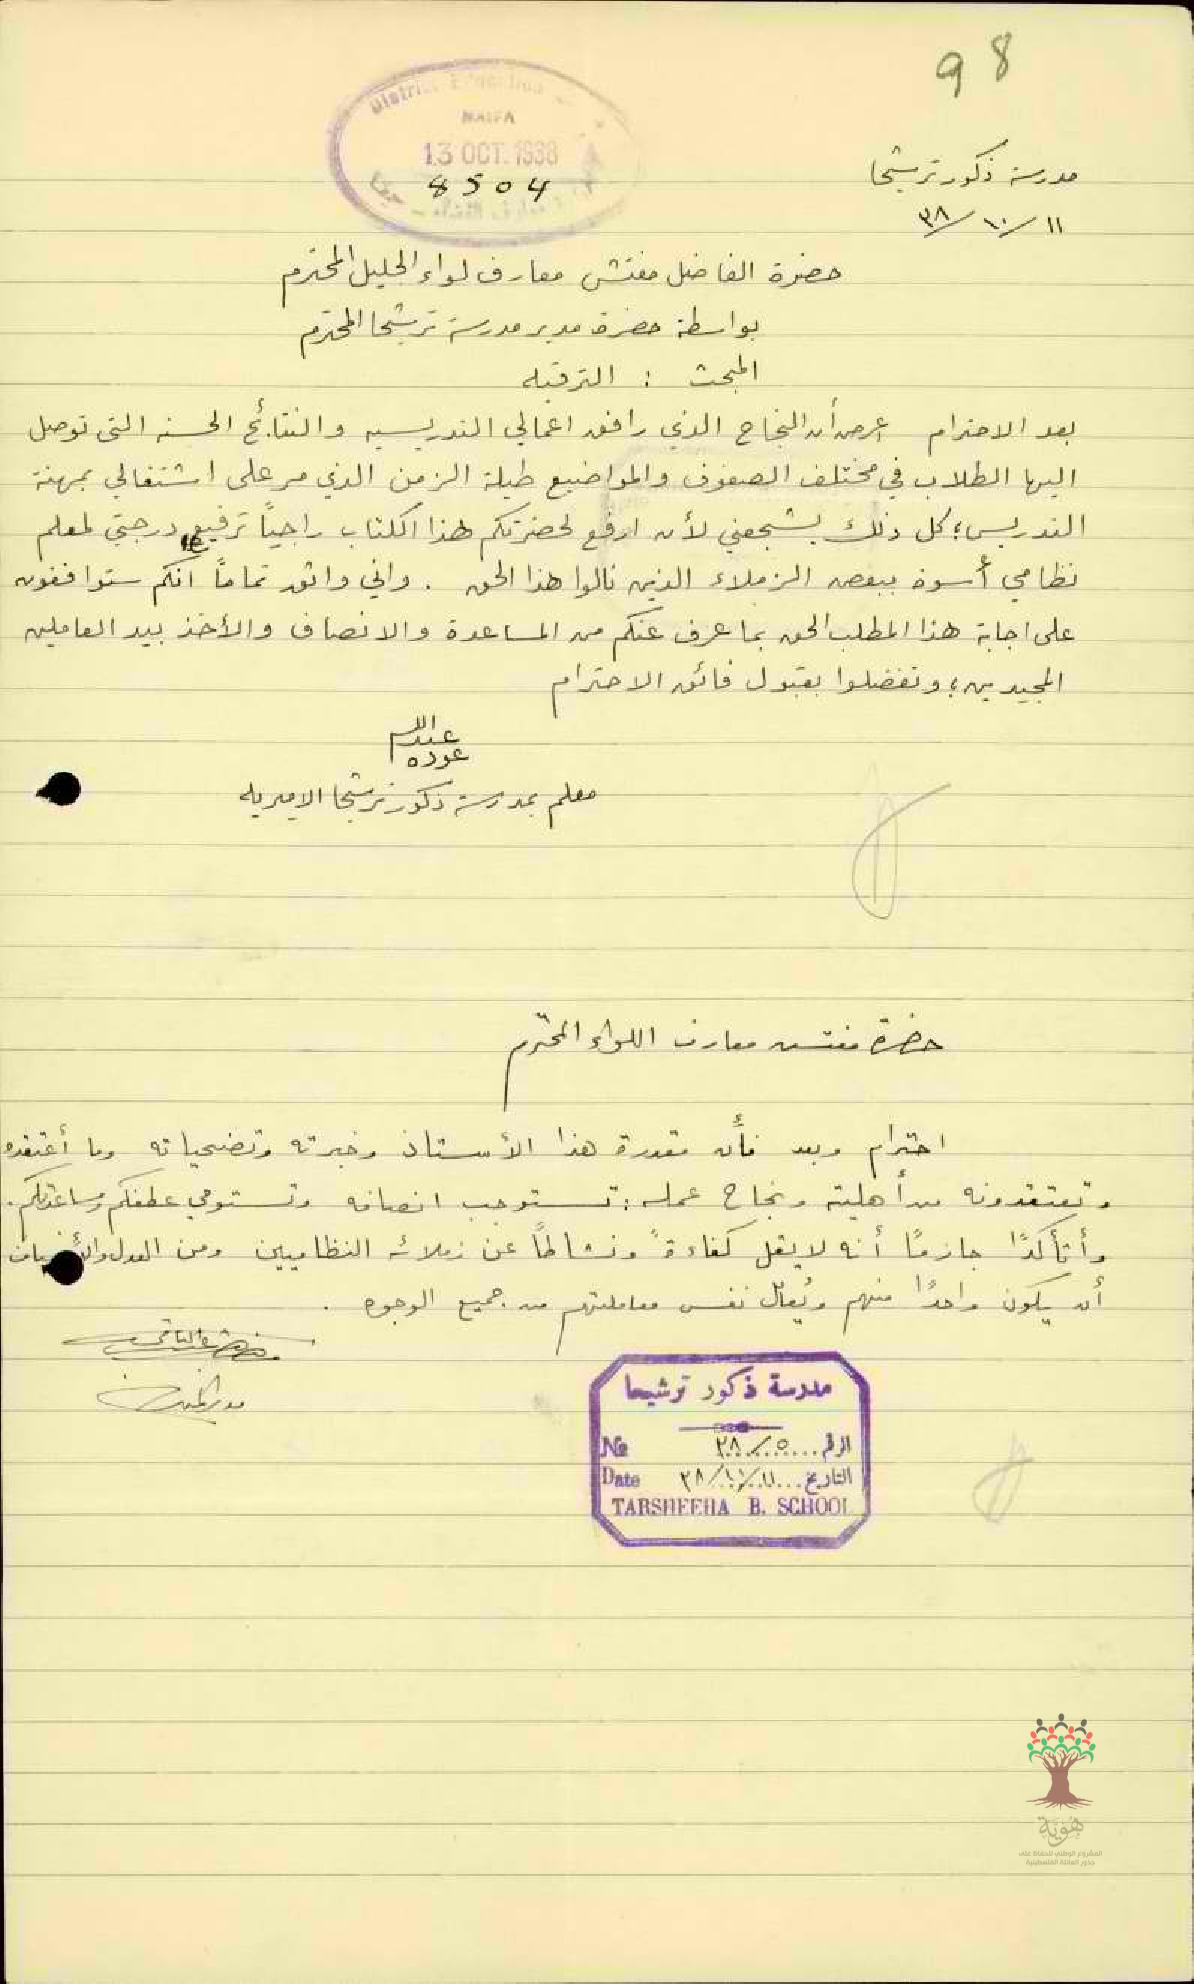 98
District Education
HAIFA
13 OCT. 1938
8504
معارف القضاء - حيفا
مدرسة ذكور ترشيحا
١١/١٠/٣٨
حضرة الفاضل مفتش معارف لواء الجليل المحترم
بواسطة حضرة مدير مدرسة ترشيحا المحترم
المبحث : الترقيه
بعد الاحترام اعرض أن النجاح الذي رافق اعمالي التدريسيه والنتائج الحسنه التي توصل
اليها الطلاب في مختلف الصفوف والمواضيع طيلة الزمن الذي مر على اشتغالي بمهنة
التدريس؛ كل ذلك يشجعني لأن ارفع لحضرتكم هذا الكتاب راجياً ترفيع درجتي لمعلم
نظامي أسوة ببعض الزملاء الذين نالوا هذا الحق . واني واثق تماماً انكم ستوافقون
على اجابة هذا المطلب الحق بما عرف عنكم من المساعدة والانصاف والأخذ بيد العاملين
المجيدين؛ وتفضلوا بقبول فائق الاحترام
عبدالله
عوده
معلم بمدرسة ذكور ترشيحا الاميريه
حضرة مفتش معارف اللواء المحترم
احترام وبعد فأن مقدرة هذا الأستاذ وخبرته وتضحياته وما أعتقده
وتعتقدونه من أهليته ونجاح عمله؛ تستوجب انصافه وتستوحي عطفكم ومساعدتكم.
وأتأكد جازمًا أنه لا يقل كفاءة ونشاطاً عن زملائه النظاميين ومن العدل والأنصاف
أن يكون واحدًا منهم ويُعامل نفس معاملتهم من جميع الوجوه .
مدير المدرسة
مدرسة ذكور ترشيحا
№ ٣٨/٥ الرقم
Date ٣٨/١٠/١١ التاريخ
TARSHEEHA B. SCHOOL
هوية
المشروع الوطني للحفاظ على
جذور العائلة الفلسطينية